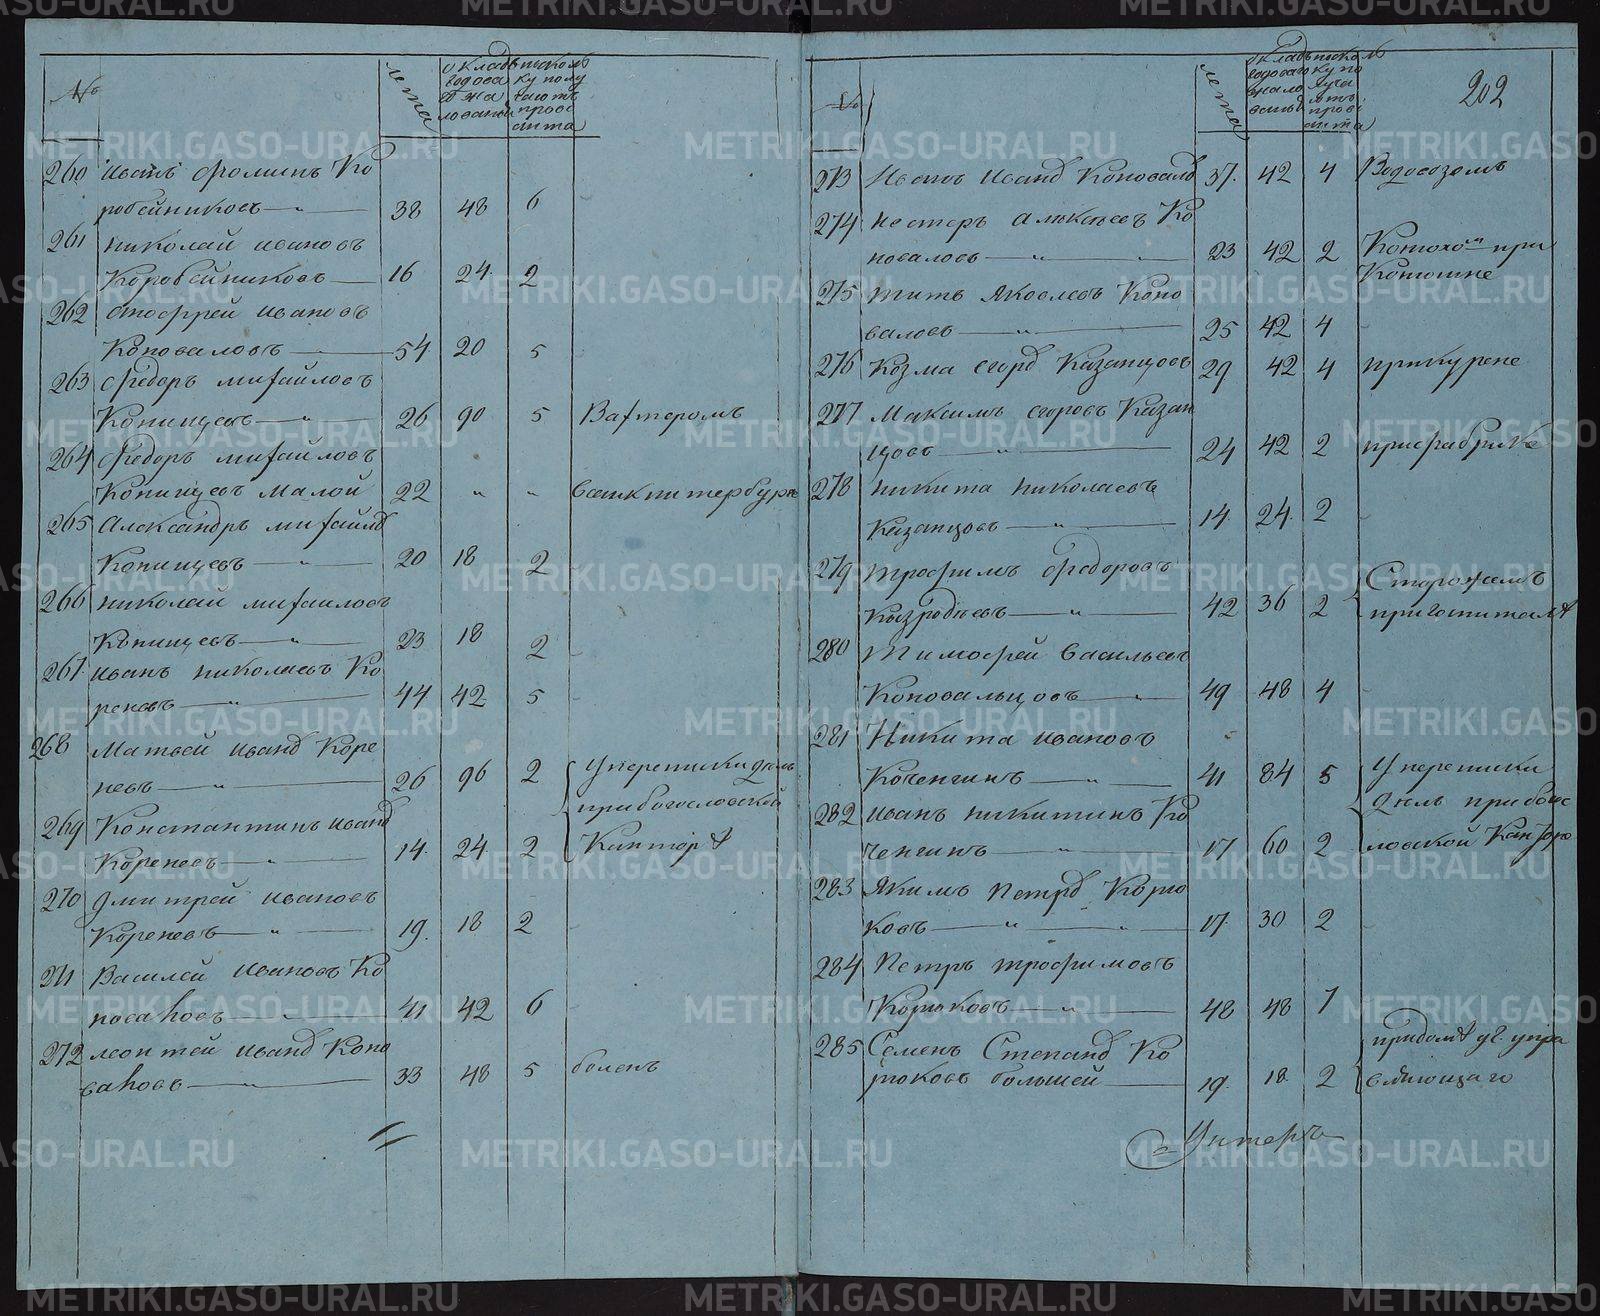 №
лета
окладъ
годова
го жа
лованья
посколь
ку полу
чаютъ
прови
анта
260 Иванъ Фоминъ Ко
робейниковъ — „ — 38 48 6
261 николай ивановъ
Коробейниковъ — 16 24 2
262 андрей ивановъ
Коноваловъ — 54 20 5
263 Федоръ михайловъ
Копищевъ — „ — 26 90 5 Вахтеромъ
264 Федоръ михаиловъ
Копищевъ малой 22 „ „
265 Александръ михайлов
Копищевъ — „ — 20 18 2
266 николай михаиловъ
Копищевъ — „ — 23 18 2
267 иванъ николаевъ Ко
реневъ — „ — 44 42 5
268 Матвей иванов Коре
невъ — „ — 26 96 2 У переписки делъ
при богословской
269 Константинъ иванов
Кореневъ — „ — 14 24 2 Канторе
270 дмитрей ивановъ
Кореневъ — „ — 19 18 2
271 Василей ивановъ Ко
поваловъ — „ — 41 42 6
272 леонтей иванов Коно
валовъ — „ — 33 48 5 боленъ
202
№
лета
окладъ
годоваго
жало
ванья
посколь
ку по
луча
ютъ
прови
анта
273 Иванъ Иванов Коновалов 37 42 4 Водовозомъ
274 нестеръ алексеевъ Ко
новаловъ — „ — 23 42 2 Конюхом при
Конюшне
275 титъ Яковлевъ Коно
валовъ — „ — 25 42 4
276 Козма Егоров Казанцовъ 29 42 4 при курене
277 Максимъ егоровъ Казан
цовъ — „ — 24 42 2 при фабрике
278 никита николаевъ
Казанцовъ — „ — 14 24 2
279 трофимъ Федоровъ
— „ — 42 36 2 Сторожемъ
при гошпитале
280 Тимофей васильевъ
Коновальцовъ — „ — 49 48 4
281 Никита ивановъ
Коченгинъ — „ — 41 84 5 У переписки
делъ при богос
282 иванъ никитинъ Ко
ченгинъ — „ — 17 60 2 ловской Канторе
283 Якимъ петров Корю
ковъ — „ — „ — 17 30 2
284 Петръ трофимовъ
Корюковъ — „ — 48 48 7
285 Семенъ Степанов Ко
рюковъ большей — 19 18 2 при доме у г. упра
вляющаго
Унтеръ